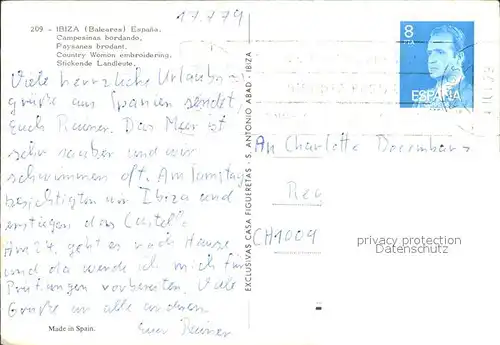 17.7.79
209 - IBIZA (Baleares) España.
Campesinas bordando,
Paysanes brodant.
Country Women embroidering.
Stickende Landleute.
Viele herrliche Urlaubs-
grüße aus Spanien sendet
Euch Rainer. Das Meer ist
sehr sauber und wir
schwimmen oft. Am Samstag
besichtigten wir Ibiza und
erstiegen das Castell.
Am 24. geht es nach Hause
und da werde ich mich für
Prüfungen vorbereiten. Viele
Grüße an alle anderen
Euer Rainer
Made in Spain.
EXCLUSIVAS CASA FIGUERETAS - S. ANTONIO ABAD - IBIZA
8
PTA
ESPAÑA
An Charlotte
CH1009
privacy protection
Datenschutz